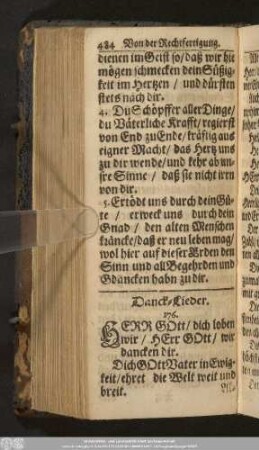 484 Von der Rechtfertigung.
dienen im Geist so/ daß wir hie
mögen schmecken dein Süßig-
keit im Hertzen / und dürsten
stets nach dir.
4. Du Schöpffer aller Dinge/
du Väterliche Krafft/ regierst
von End zu Ende/ kräfftig aus
eigner Macht/ das Hertz uns
zu dir wende/ und kehr ab un-
sre Sinne / daß sie nicht irrn
von dir.
5. Ertödt uns durch dein Gü-
te / erweck uns durch dein
Gnad / den alten Menschen
kräncke/ daß er neu leben mag/
wol hier auf dieser Erden den
Sinn und all Begehrden und
Gdancken habn zu dir.
Danck-Lieder.
176.
HERR GOtt/ dich loben
wir / HErr GOtt/ wir
dancken dir.
Dich GOtt Vater in Ewig-
keit/ ehret die Welt weit und
breit.